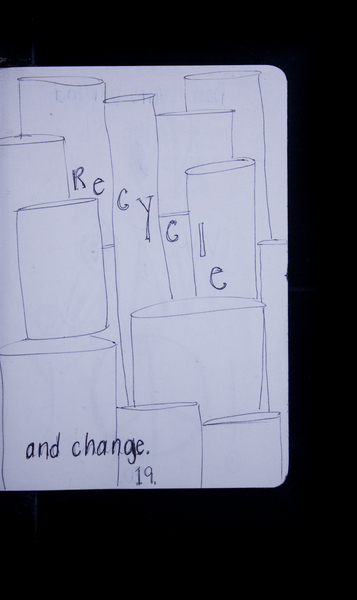 Recycle
and change.
19.